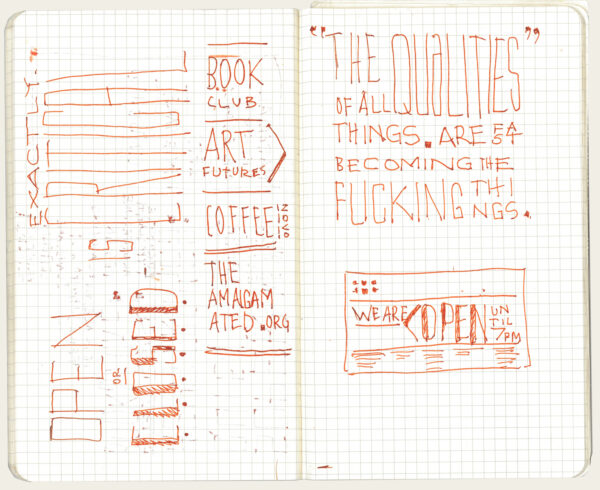 OPEN
OR
CLOSED.
IS
EXACTLY.
BOOK
CLUB
ART
FUTURES
COFFEE
THE
AMALGAM
ATED.ORG
"THE QUALITIES"
OF ALL
THINGS. ARE FAST
BECOMING THE
FUCKING THINGS.
WE ARE OPEN UNTIL 7PM